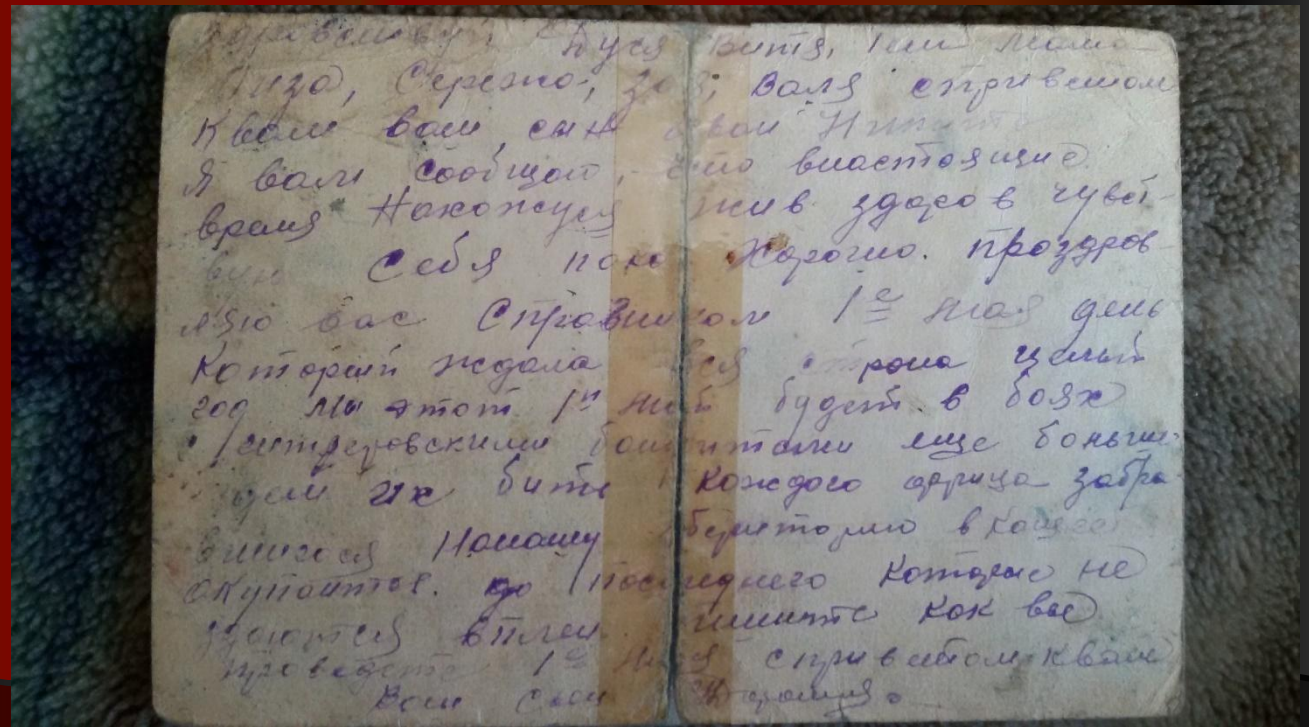 Здравствуй, Дуся Витя, Тиш мама
Лиза, Сережа, Зоя, Валя сприветом
К вам ваш, сын
Я вам сообщаю, что внастоящие
время Нахожуся жив здоров чувст
вую Себя пока Хорошо. проздров
ляю вас Спразником 1е мая день
Который ждала вся строна целый
год Мы этот 1й май будет в боях
сгитлеровскими бандитами еще больши
будем их бить Каждого фрица забра
вшигося Нанашу территорию вкаждого
окупанта. до последнего Которые не
здаются вплен пишите Как вы
проведете 1е мая сприветом К вам
Ваш сын